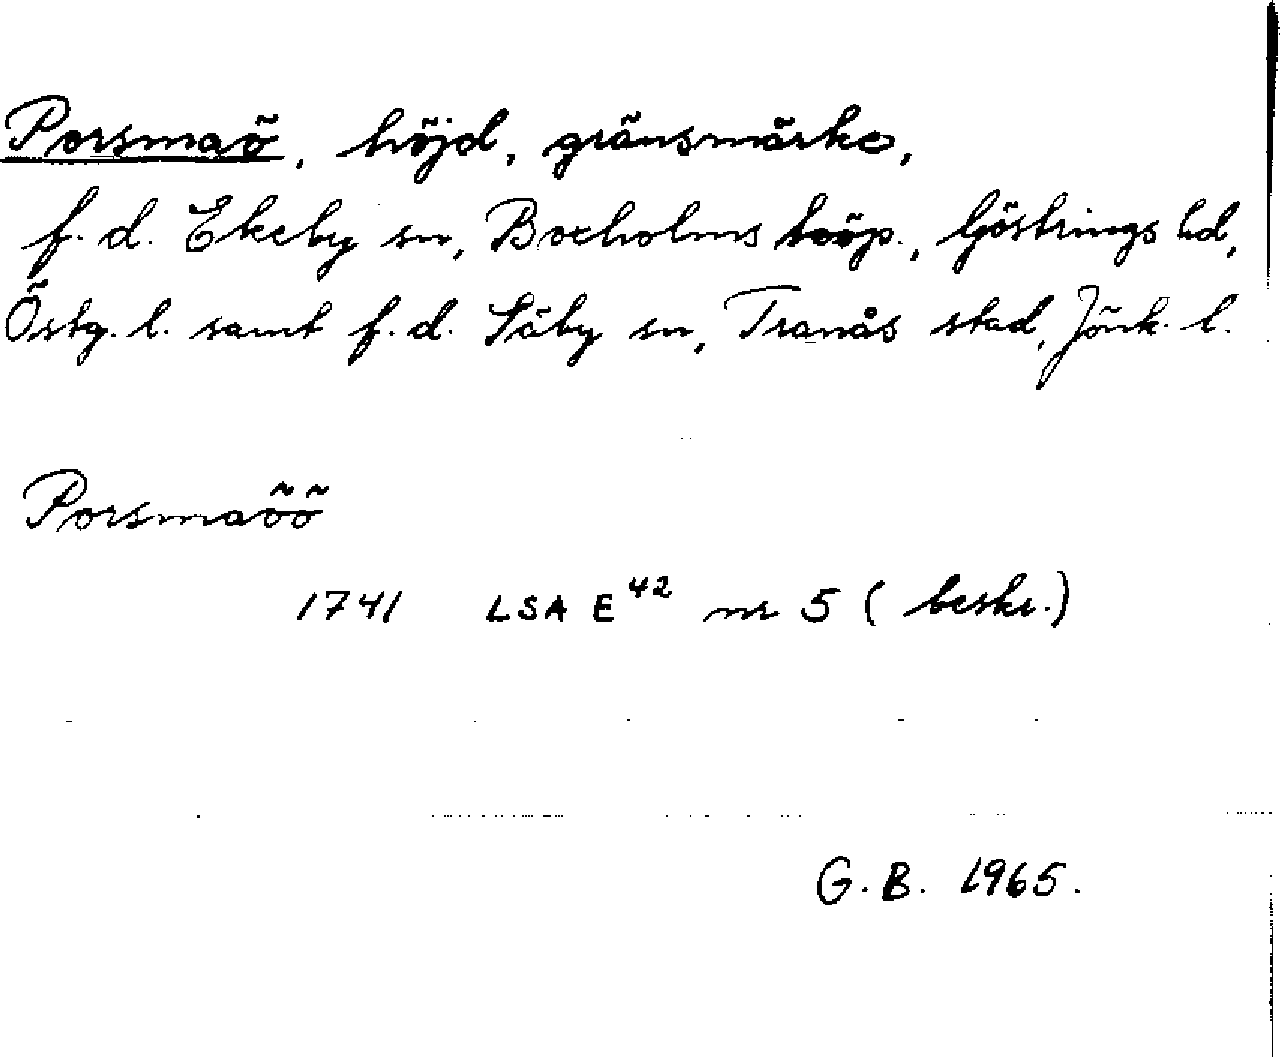 Porsmaö, höjd, gränsmärke,
f. d. Ekeby sn, Boxholms köp., Göstrings hd,
Östg. l. samt f. d. Säby sn, Tranås stad, Jönk. l.
Porsmaöö
1741 LSA E42 nr 5 (beskr.)
G. B. 1965.